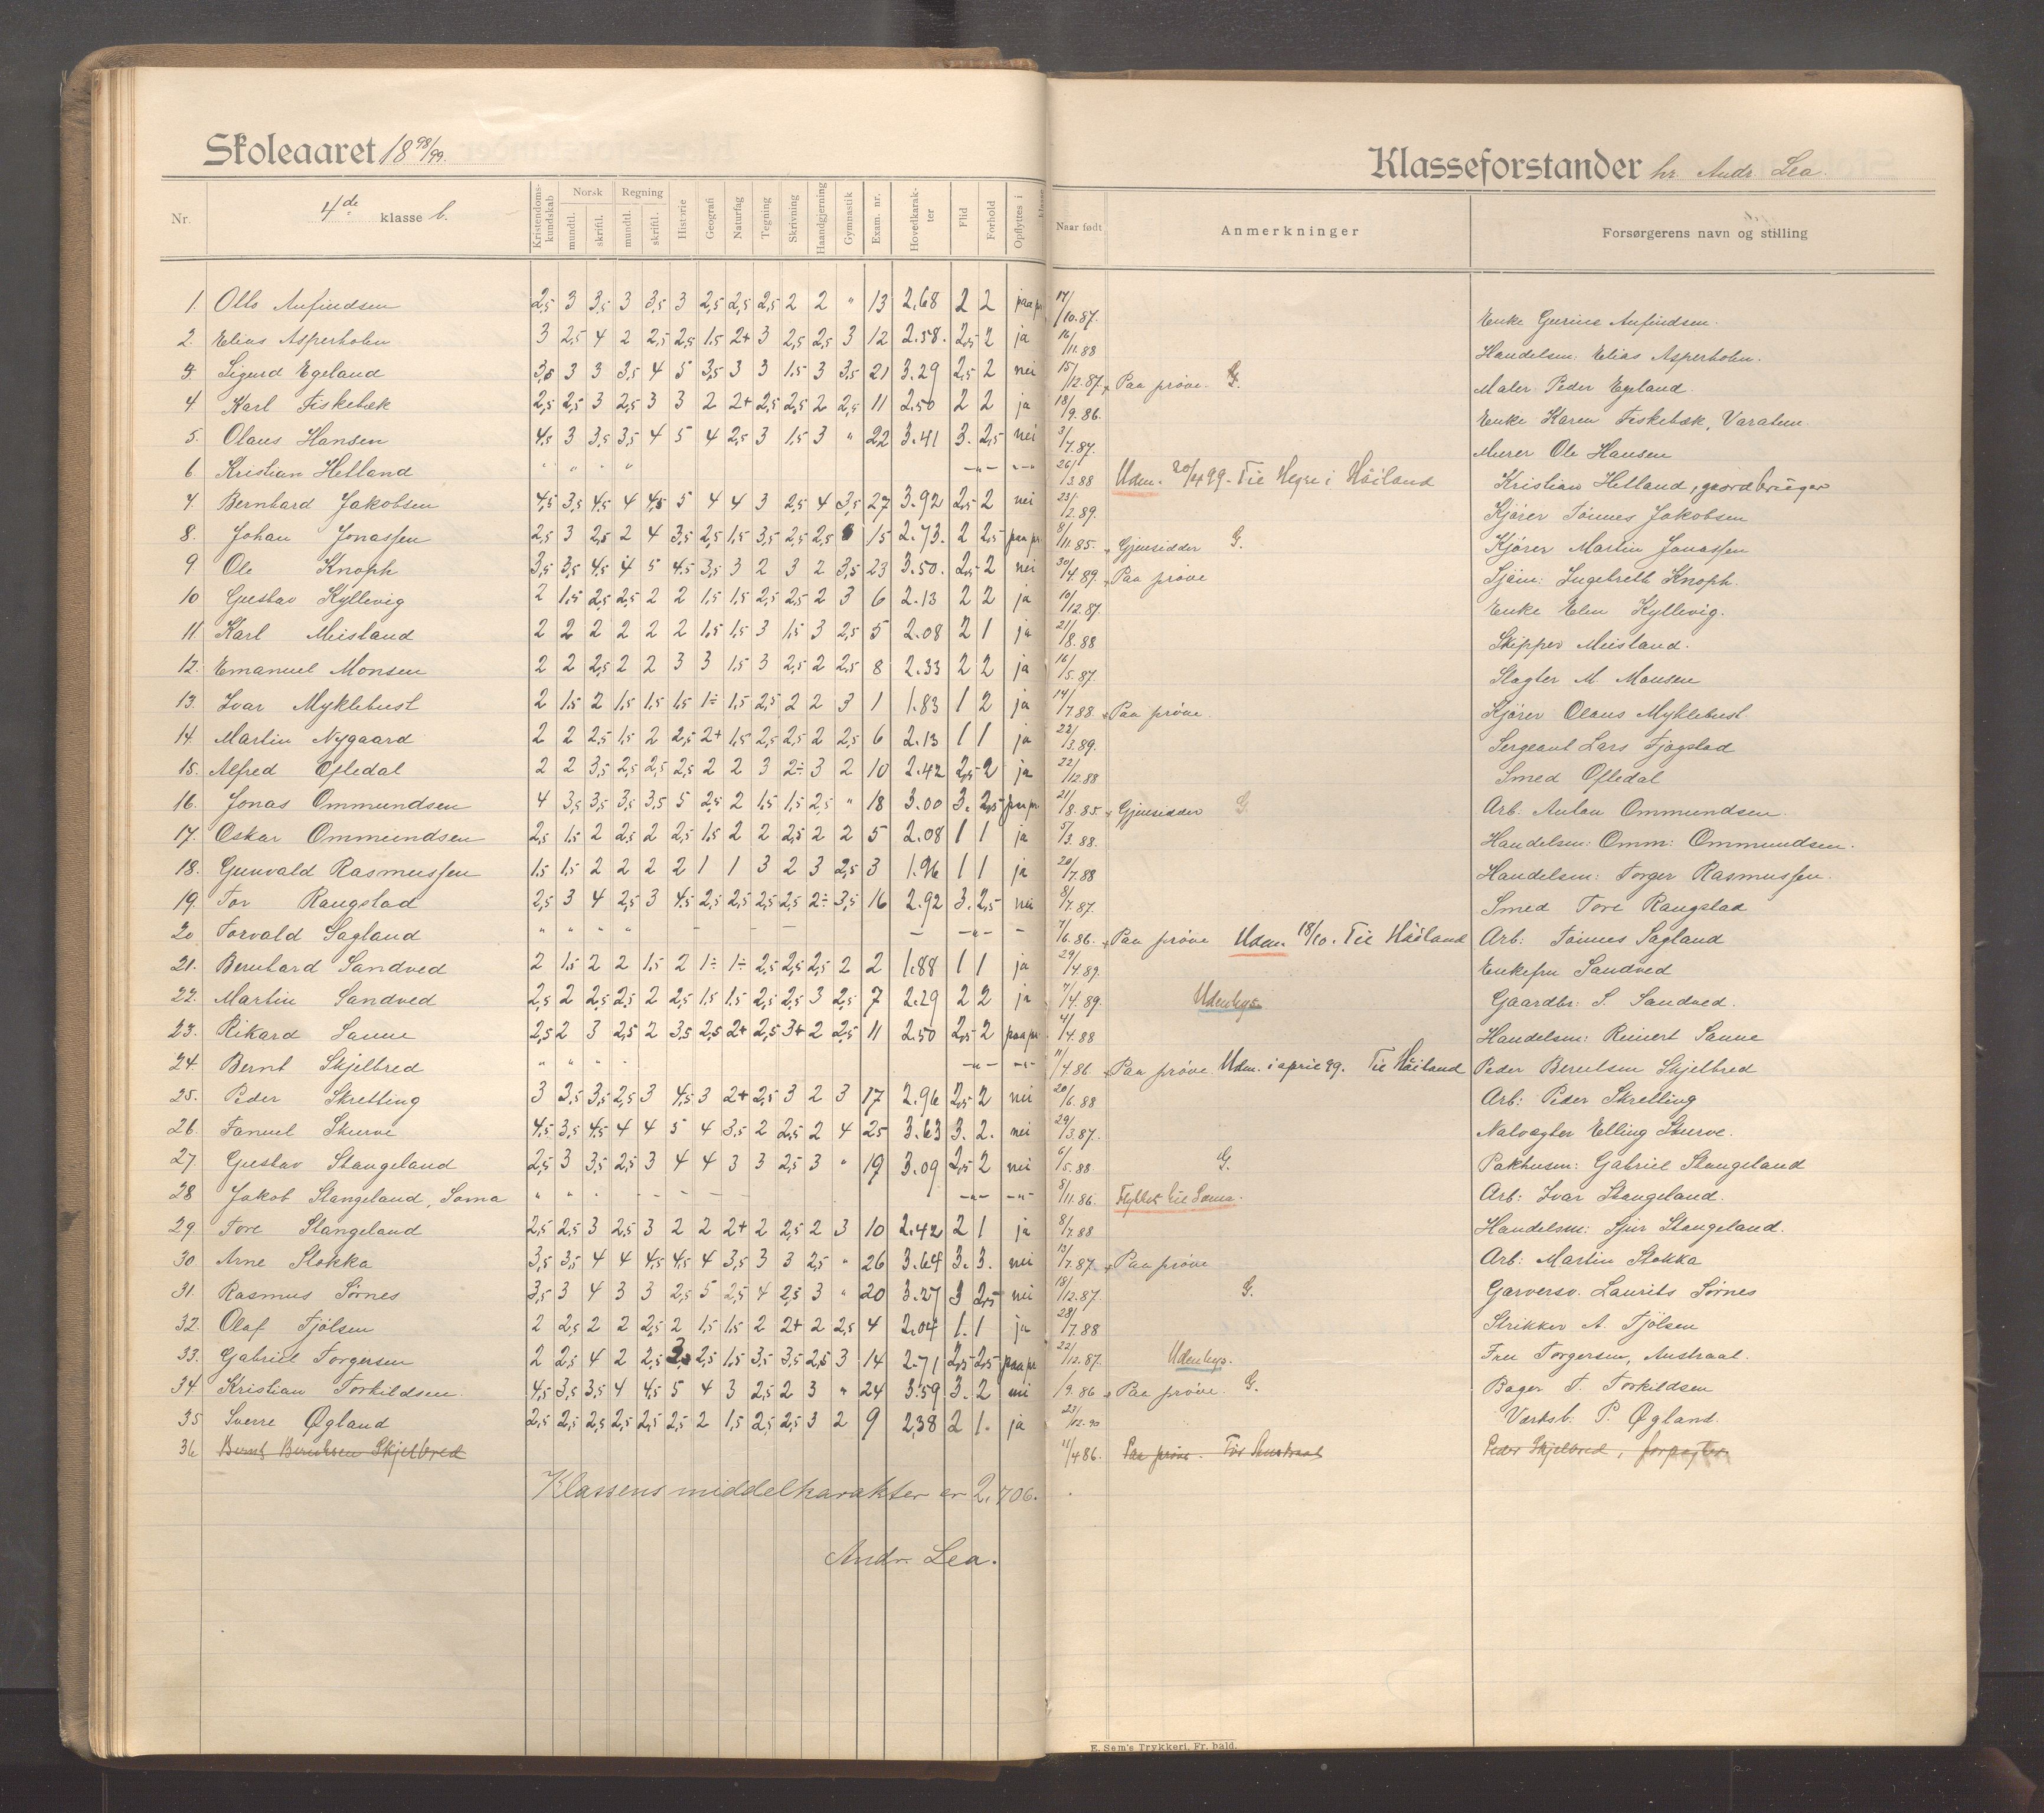 Skoleaaret 18 98/99.
Nr. 4de klasse b. Kristendomskundskab Norsk mundtl. skriftl. Regning mundtl. skriftl. Historie Geografi Naturfag Tegning Skrivning Haandgjerning Gymnastik Exam. nr. Hovedkarakter Flid Forhold Opflyttes i klasse
1. Olls Anfindsen 2,5 3 3,5 3 3,5 3 2,5 2,5 2,5 2 2 " 13 2.68 2 2 paa pr.
2. Elias Asperholm 3 2,5 4 2 2,5 2,5 1,5 2+ 3 2,5 2,5 3 12 2.58. 2,5 2 ja
3. Sigurd Egeland 3,5 3 3 3,5 4 5 3,5 3 3 1.5 3 3,5 21 3.29 2,5 2 nei
4 Karl Fiskebæk 2,5 2,5 3 2,5 3 3 2 2+ 2,5 2,5 2 2,5 11 2.50 2 2 ja
5. Olaus Hansen 4,5 3 3,5 3,5 4 5 4 2,5 3 1.5 3 " 22 3.41 3. 2,5 nei
6 Kristian Hetland " " " " -"- -"-
7. Bernhard Jakobsen 4,5 3,5 4,5 4 4,5 5 4 4 3 2,5 4 3,5 27 3.92 2,5 2 nei
8. Johan Jonassen 2,5 3 2,5 2 4 3,5 2,5 1,5 3,5 2,5 2,5 15 2.73. 2 2,5 paa pr.
9 Ole Knoph 3,5 3,5 4,5 4 5 4,5 3,5 3 2 3 2 3,5 23 3.50. 2,5 2 nei
10 Gustav Kyllevig 2 1.5 2,5 2,5 2 2 1,5 1,5 2,5 2,5 2 3 6 2.13 2 2 ja
11 Karl Meisland 2 2 2 2 2 2 1,5 1,5 3 1.5 3 2,5 5 2.08 2 1 ja
12. Emanuel Monsen 2 2 2,5 2 2 3 3 1.5 3 2,5 2 2,5 8 2.33 2 2 ja
13. Ivar Myklebust 2 1.5 2 1.5 1.5 1,5 1÷ 1.5 2,5 2 2 3 1 1.83 1 2 ja
14. Martin Nygaard 2 2 2,5 1,5 2 2,5 2+ 1,5 2,5 2,5 2 2,5 6 2.13 1 1 ja
15. Alfred Ofledal 2 2 3,5 2,5 2,5 2,5 2 2 3 2÷ 3 2 10 2.42 2,5 2 ja
16. Jonas Ommundsen 4 3,5 3,5 3,5 3,5 5 2,5 2 1.5 1.5 2,5 " 18 3.00 3. 2,5 paa pr.
17. Oskar Ommundsen 2,5 1.5 2 2,5 2 2,5 1.5 2 2 2,5 2 2 5 2.08 1 1 ja
18. Gunvald Rasmussen 1.5 1.5 2 2 2 2 1 1 3 2 3 2,5 3 1.96 1 1 ja
19. Tor Raugstad 2,5 3 4 2,5 3 4.5 2,5 2,5 2,5 2,5 2÷ 3,5 16 2.92 3. 2,5 nei
20 Torvald Sagland " " " " - - - - - -"- -
21. Bernhard Sandved 2 1.5 2 2 1.5 2 1÷ 1÷ 2,5 2,5 2,5 2 2 1.88 1 1 ja
22. Martin Sandved 2,5 2 2,5 2,5 2 2,5 1.5 1.5 2,5 2,5 3 2,5 7 2.29 2 2 ja
23. Rikard Sanne 2,5 2 3 2,5 2 3,5 2,5 2+ 2,5 3+ 2 2,5 11 2.50 2,5 2 paa pr.
24. Bernt Skjelbred " " " " -"- -"-
25. Peder Skretting 3 3,5 3,5 2,5 3 4,5 3 2+ 2,5 3 2 3 17 2.96 2,5 2 nei
26. Fanuel Skurve 4,5 3,5 4,5 4 4 5 4 3,5 2 2,5 2 4 25 3.63 3. 2. nei
27. Gustav Stangeland 2,5 3 3,5 2,5 3 4 4 3 3 2,5 3 " 19 3.09 2,5 2 nei
28 Jakob Stangeland, Soma " " " - - - - -"- -"-
29. Tore Stangeland 2,5 2,5 3 2,5 3 2 2 2+ 2 2,5 2 3 10 2.42 2 1 ja
30 Arne Stokka 3,5 3,5 4 4 4,5 4,5 4 3,5 3 3 2,5 " 26 3.64 3. 3. nei
31. Rasmus Sørnes 3,5 3 4 3 3 2,5 5 2,5 4 2,5 3 " 20 3.27 3 2,5 nei
32. Olaf Tjølsen 2 2,5 2 2 2,5 2 1,5 1.5 2 2+ 2 2,5 4 2.04 1. 1 ja
33. Gabriel Torgersen 2 2,5 4 2 2,5 3 2,5 1.5 3,5 3,5 2,5 3 14 2.71 2,5 2,5 paa pr
34 Kristian Torkildsen. 4,5 3,5 3,5 4 4,5 5 4 3 2,5 2 3 " 24 3.59 3. 2 nei
35 Sverre Øgland 2,5 2,5 2,5 2,5 2,5 2,5 2 1.5 2,5 2,5 3 2 9 2,38 2 1. ja
36 Bernt Berntsen Skjelbred
Klassens middelkarakter er 2.706.
Andr. Lea.
Klasseforstander hr. Andr. Lea.
Naar født Anmerkninger Forsørgerens navn og stilling
17/10.87. Enke Gurine Anfindsen.
16/11.88 Handelsm: Elias Asperholm.
15/12.87. + Paa prøve. G. Maler Peder Egeland.
18/9.86. Enke Karen Fiskebæk, Varatun.
3/7.87. Murer Ole Hansen
26/3.88 Udm. 20/4 99. Til Hegre i Höiland Kristian Hetland, gaardbruger
23/2.89. Kjører Tönnes Jakobsen
8/11.85. + Gjensidder G. Kjører Martin Jonassen
30/4.89. + Paa prøve Sjöm: Ingebreth Knoph.
10/12.87. Enke Elen Kyllevig.
21/8.88 Skipper Meisland.
16/5.87. Slagter M. Monsen
14/7.88. + Paa prøve. Kjører Olaus Myklebust
22/3.89. Sergeant Lars Tjøgstad
22/12.88 Smed Ofledal
21/8.85. + Gjensidder G. Arb. Anton Ommundsen.
5/3.88. Handelsm: Omm: Ommundsen.
20/7.88 Handelsm: Torger Rasmussen.
8/7.87. Smed Tore Raugstad
7/6.86. + Paa prøve Udm. 18/10. Til Höiland Arb: Tönnes Sagland
29/4.89. Enkefru Sandved
7/4.89. Udenbys Gaardbr: S. Sandved.
4/4.88 Handelsm: Reinert Sanne
11/4.86 + Paa prøve. Udm. i april 99. Til Höiland Peder Berntsen Skjelbred
20/6.88 Arb: Peder Skretting
29/3.87. Natvægter Elling Skurve.
6/5.88. G. Pakhusm: Gabriel Stangeland
8/11.86. Flyttet til Soma. Arb: Ivar Stangeland.
8/7.88 Handelsm: Sjur Stangeland.
13/7.87. + Paa prøve Arb: Martin Stokka
18/12.87. G. Garversv. Laurits Sørnes
28/7.88 Strikker A. Tjølsen
22/12.87. Udenbys. Fru Torgersen, Austraat.
1/9.86 + Paa prøve. G. Bager T. Torkildsen
23/12.90 Værksb: P. Øgland.
11/4 86. Paa prøve. För Austraat Peder Skjelbred, forpagter
E. Sem's Trykkeri, Fr. hald.